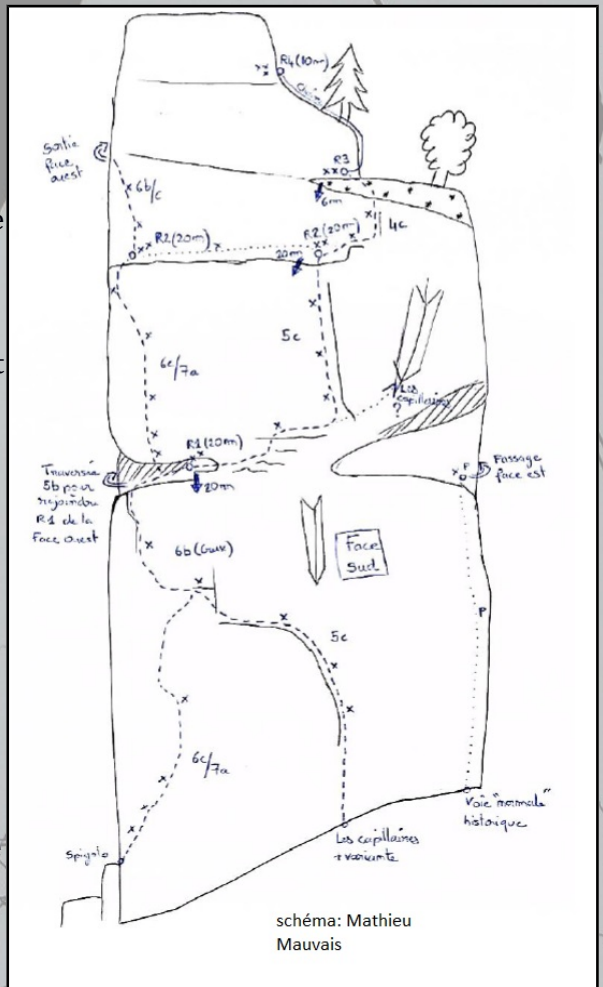 R4 (10m)
R3
Sortie
face
ouest
6b/c
6m
R2 (20m)
R2 (20m)
4c
20m
5c
6c/7a
Les
capillaires
?
R1 (20m)
Traversée
5b pour
rejoindre
R1 de la
Face ouest
20m
P
Passage
face est
6b (Grise)
Face
Sud
5c
P
6c/7a
Voie "normale"
historique
Les capillaires
+ variante
Spigolo
schéma: Mathieu
Mauvais